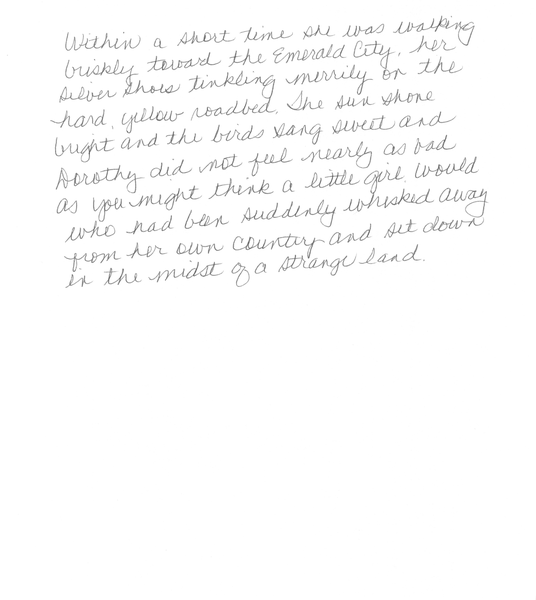 Within a short time she was walking
briskly toward the Emerald City, her
Silver Shoes tinkling merrily on the
hard, yellow roadbed. The sun shone
bright and the birds sang sweet and
Dorothy did not feel nearly as bad
as you might think a little girl would
who had been suddenly whisked away
from her own country and set down
in the midst of a strange land.